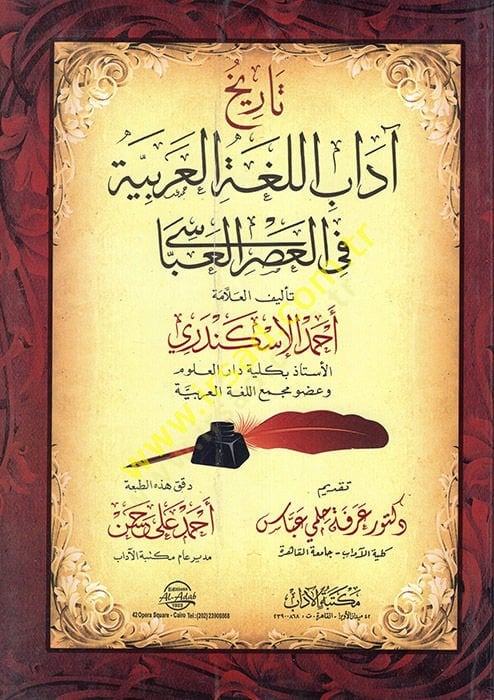 تاريخ
آداب اللغة العربية
في العصر العباسي
تأليف العلامة
أحمد الإسكندري
الأستاذ بكلية دار العلوم
وعضو مجمع اللغة العربية
تقديم
دكتور عرفة حلمي عباس
كلية الآداب - جامعة القاهرة
دقق هذه الطبعة
أحمد علي حسن
مدير عام مكتبة الآداب
Editions
Al-Adab
1923
42 Opera Square - Cairo Tel: (202) 23900868
مكتبة الآداب
٤٢ ميدان الأوبرا - القاهرة ت: ٢٣٩٠٠٨٦٨